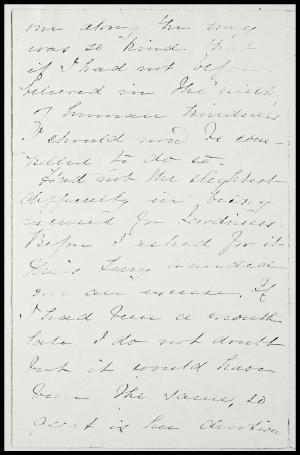 one along the way
was so kind that
if I had not before
believed in the "milk
of human kindness"
I should now be com-
pelled to do so.
Had not the slightest
difficulty in being
excused for tardiness
Before I asked for it
Miss handed
me an excuse. If
I had been a month
late I do not doubt
but it would have
been the same, so
great is her devotion